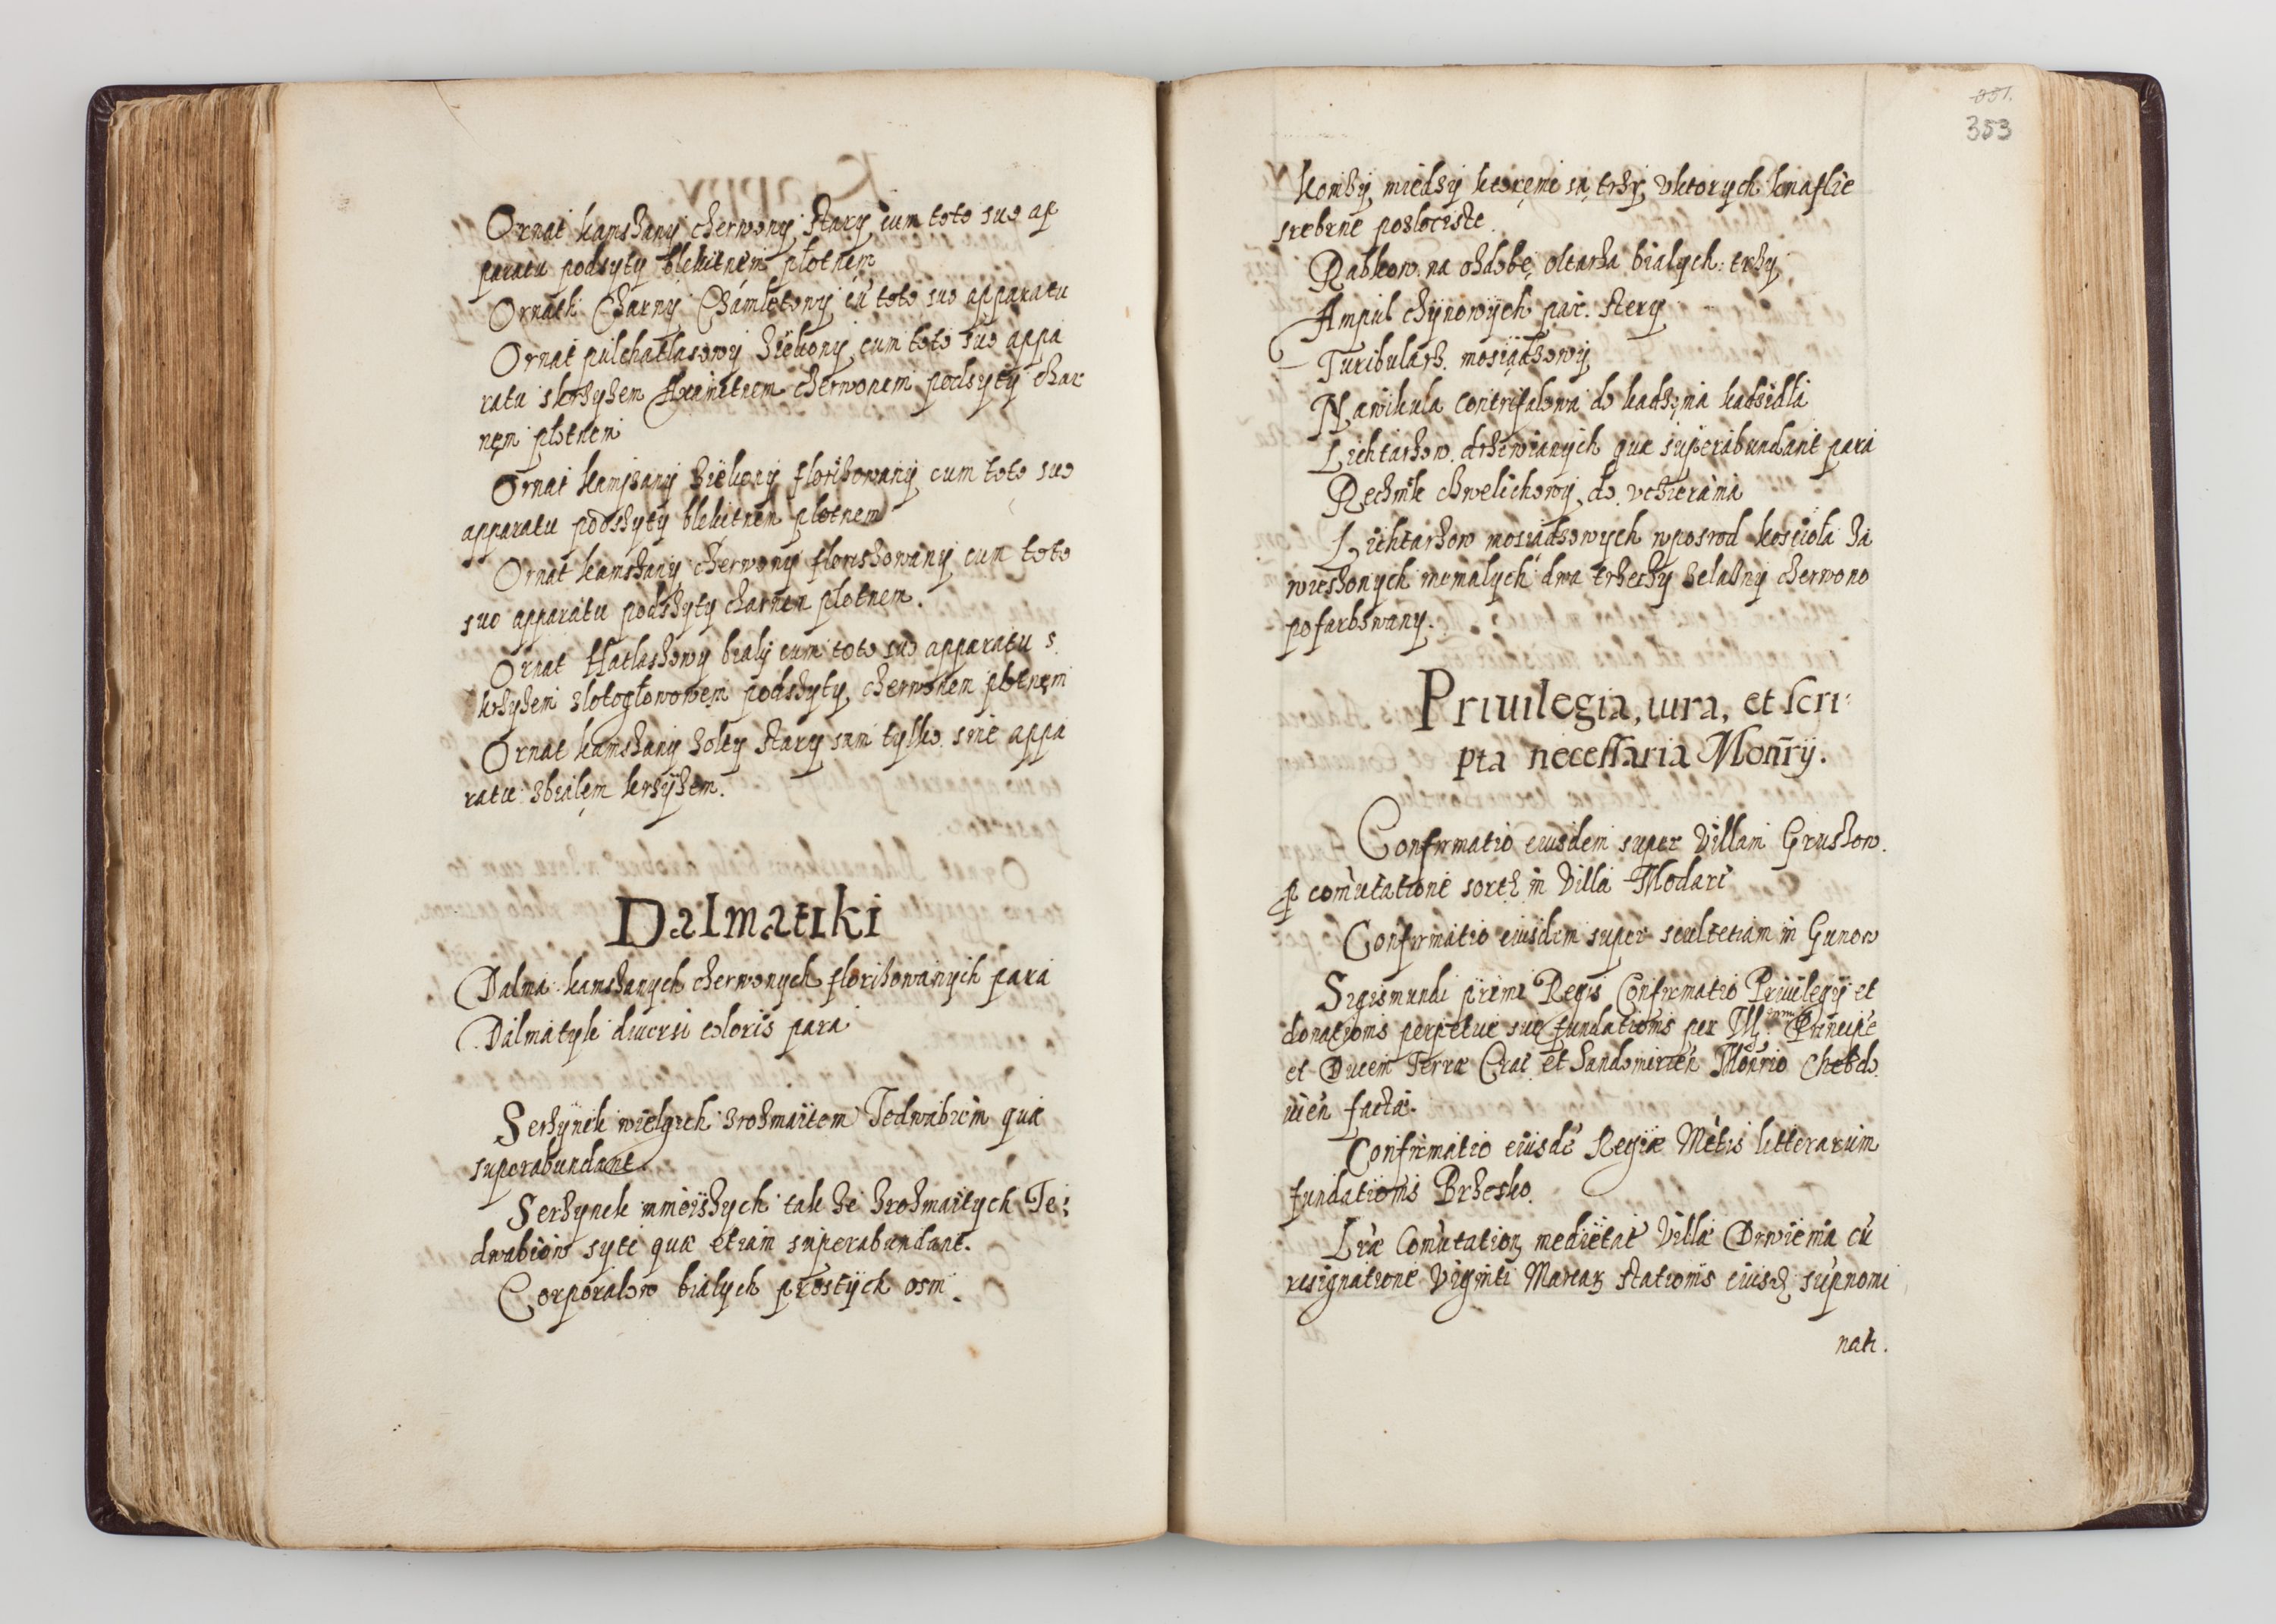 Ornat kamshany cherwony stary cum toto suo ap
paratu podsyty blekitnem plotnem
Ornath Charny Chamletowy cu toto suo apparatu
Ornat pulchatlasowy zielony cum toto suo appa
ratu skrzyzem Axamitnem cherwonem podsyty char
nem plotnem
Ornat kamszany zielony florizowany cum toto suo
apparatu podshyty blekitnem plotnem
Ornat kamshany cherwony florishowany cum toto
suo apparatu podshyty charnem plotnem.
Ornat Hatlashowy bialy cum toto suo apparatu s
krzyzem zlotoglowowem podshyty cherwonem plotnem
Ornat kamshany zolty stary sam tylko sine appa
ratu zbialem krzyzem.
Dalmatiki
Dalma: kamshanych cherwonych florizowanych para
Dalmatyk diuersi coloris para
Serzynek wielgich zrozmaitem Jedwabiem quæ
superabundant.
Serzynek mnieiszych tak ze zrozmaitych Je:
dwabiow syti quæ etiam superabundant.
Corporalow bialych prostych osm.
351.
353
komzy miedzy ktoremi sa trzy vktorych knaflie
srebrne pozlociste.
Rabkow na ozdobe oltarza bialych: trzy
Ampul chynowych par. stery
Turibularz. mosiadzowy
Nawikula contrifalowa do kadzenia kadzidla
Lichtarzow. drzewianych quæ superabundant para
Rechnik chwelichowy do vchierania
Lichtarzow mosiadzowych wposrod kosciola za
wieshonych niemalych dwa trzechy zelazny cherwono
pofarbowany.
Priuilegia, iura, et scri:
pta necessaria Monrij.
Confirmatio eiusdem super Villam Grushow.
p comutatione sortz in Villa Modari
Confirmatio eiusdem super scultetiam in Gunow
Sigismundi primi Regis Confirmatio Priuilegij et
donationis perpetuæ siue fundationis per Ill. Principe
et Ducem Terræ Crac. et Sandomirien Monrio Chebdo
uien facta.
Confirmatio eiusde Regiæ Mtis litterarum
fundationis Brzesko.
Lræ Comutation medietat Villæ Drwienia cu
resignatione Viginti Marcar stationis eiusd supnomi
nati.